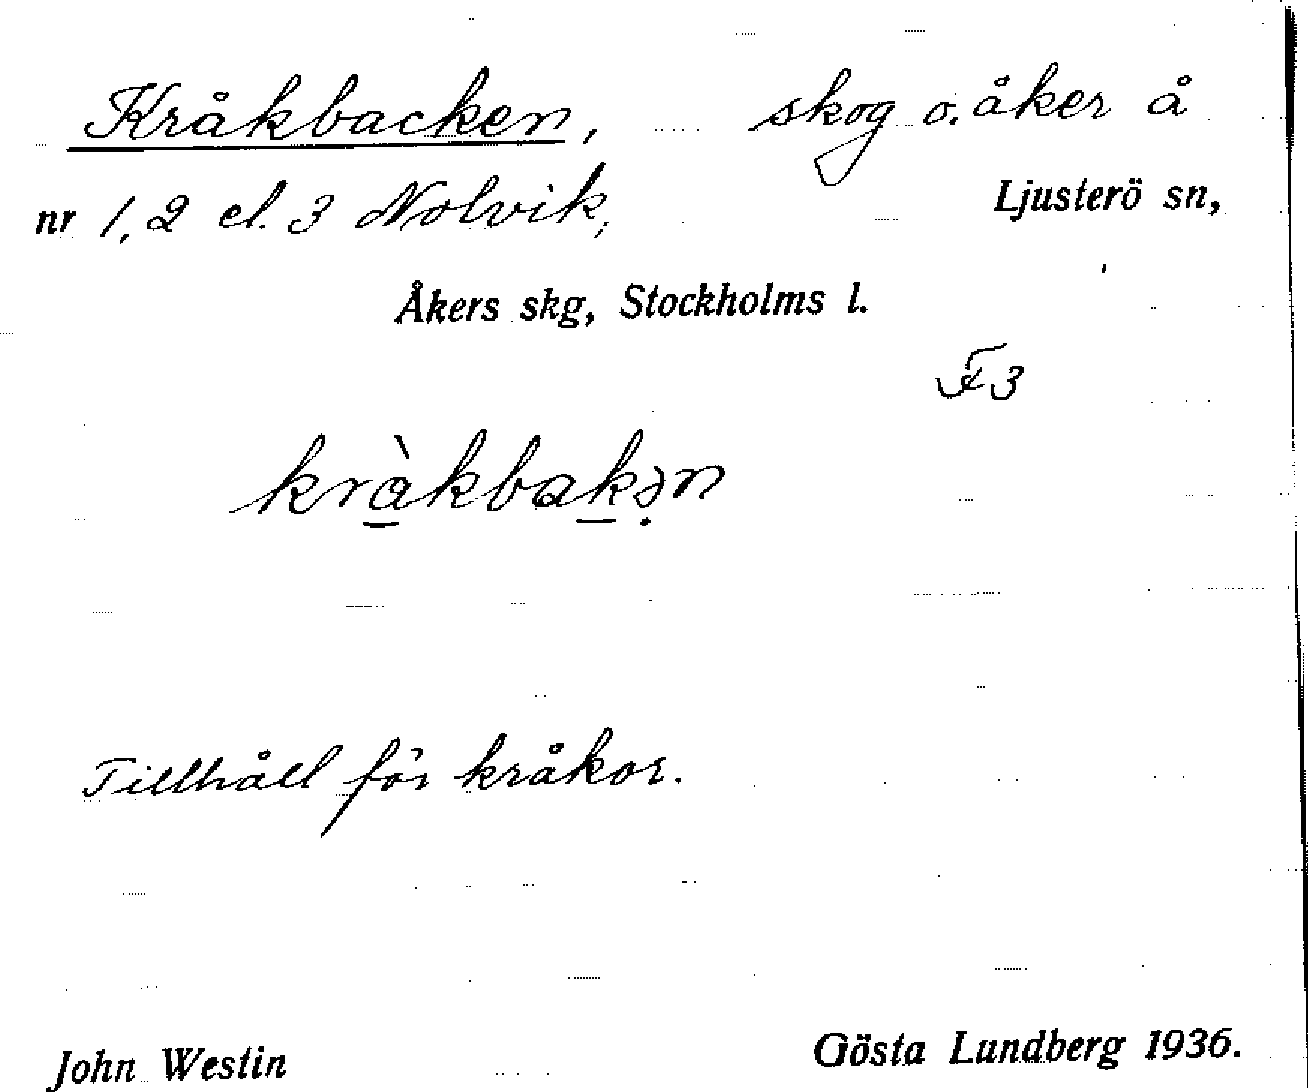 Kråkbacken, skog o. åker å
nr 1, 2 el. 3 Nolvik, Ljusterö sn,
Åkers skg, Stockholms l.
F3
kràkbakən
Tillhåll för kråkor.
John Westin Gösta Lundberg 1936.